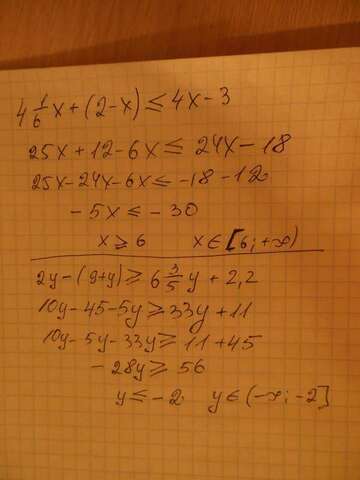 4 1/6 x + (2-x) ≤ 4x - 3
25x + 12 - 6x ≤ 24x - 18
25x - 24x - 6x ≤ -18 - 12
-5x ≤ -30
x ≥ 6 x ∈ [6; +∞)
2y - (9+y) ≥ 6 3/5 y + 2,2
10y - 45 - 5y ≥ 33y + 11
10y - 5y - 33y ≥ 11 + 45
-28y ≥ 56
y ≤ -2 y ∈ (-∞; -2]